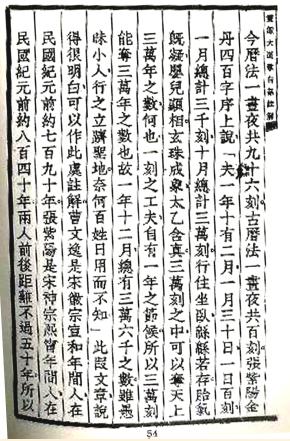 靈源大道歌白話註解
今曆法一晝夜共九十六刻古曆法一晝夜共百刻張紫陽金
丹四百字序上說「夫一年十有二月一月三十日一日百刻
一月總計三千刻十月總計三萬刻行住坐臥緜緜若存胎氣
既凝嬰兒顯相玄珠成象太乙含真三萬刻之中可以奪天上
三萬年之數何也一刻之工夫自有一年之節候所以三萬刻
能奪三萬年之數也故一年十二月總有三萬六千之數雖愚
昧小人行之立躋聖地奈何百姓日用而不知」此段文章說
得很明白可以作此處註解曹文逸是宋徽宗宣和年間人在
民國紀元前約七百九十年張紫陽是宋神宗熙甯年間人在
民國紀元前約八百四十年兩人前後距離不過五十年所以
54